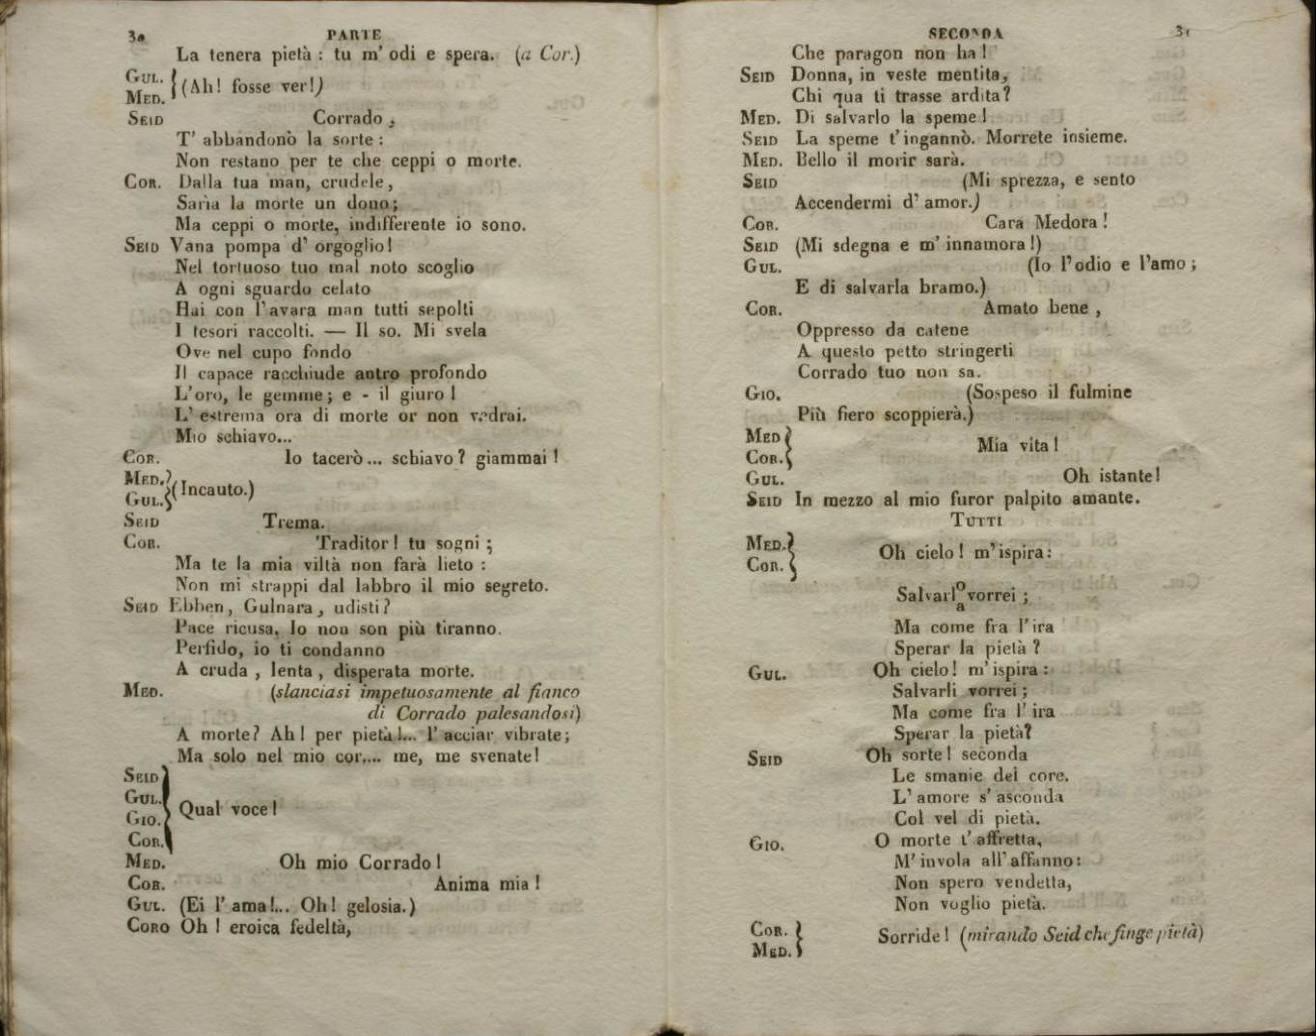 30 PARTE
La tenera pietà : tu m' odi e spera. (a Cor.)
GUL.
MED. (Ah! fosse ver!)
SEID Corrado,
T' abbandonò la sorte :
Non restano per te che ceppi o morte.
COR. Dalla tua man, crudele,
Saria la morte un dono;
Ma ceppi o morte, indifferente io sono.
SEID Vana pompa d' orgoglio!
Nel tortuoso tuo mal noto scoglio
A ogni sguardo celato
Hai con l'avara man tutti sepolti
I tesori raccolti. — Il so. Mi svela
Ove nel cupo fondo
Il capace racchiude antro profondo
L'oro, le gemme; e - il giuro!
L' estrema ora di morte or non vedrai.
Mio schiavo...
COR. Io tacerò... schiavo? giammai!
MED.
GUL. (Incauto.)
SEID Trema.
COR. Traditor! tu sogni;
Ma te la mia viltà non farà lieto :
Non mi strappi dal labbro il mio segreto.
SEID Ebben, Gulnara, udisti?
Pace ricusa, Io non son più tiranno.
Perfido, io ti condanno
A cruda, lenta, disperata morte.
MED. (slanciasi impetuosamente al fianco
di Corrado palesandosi)
A morte? Ah! per pietà!... l' acciar vibrate;
Ma solo nel mio cor.... me, me svenate!
SEID
GUL.
GIO.
COR. Qual voce!
MED. Oh mio Corrado!
COR. Anima mia!
GUL. (Ei l' ama!... Oh! gelosia.)
CORO Oh! eroica fedeltà,
SECONDA 31
Che paragon non ha!
SEID Donna, in veste mentita,
Chi qua ti trasse ardita?
MED. Di salvarlo la speme!
SEID La speme t'ingannò. Morrete insieme.
MED. Bello il morir sarà.
SEID (Mi sprezza, e sento
Accendermi d' amor.)
COR. Cara Medora!
SEID (Mi sdegna e m' innamora!)
GUL. (Io l'odio e l'amo;
E di salvarla bramo.)
COR. Amato bene,
Oppresso da catene
A questo petto stringerti
Corrado tuo non sa.
GIO. (Sospeso il fulmine
Più fiero scoppierà.)
MED
COR. Mia vita!
GUL. Oh istante!
SEID In mezzo al mio furor palpito amante.
TUTTI
MED.
COR. Oh cielo! m'ispira:
Salvarl o/a vorrei;
Ma come fra l'ira
Sperar la pietà?
GUL. Oh cielo! m'ispira:
Salvarli vorrei;
Ma come fra l' ira
Sperar la pietà?
SEID Oh sorte! seconda
Le smanie del core.
L' amore s' asconda
Col vel di pietà.
GIO. O morte t' affretta,
M' invola all' affanno:
Non spero vendetta,
Non voglio pietà.
COR.
MED. Sorride! (mirando Seid che finge pietà)